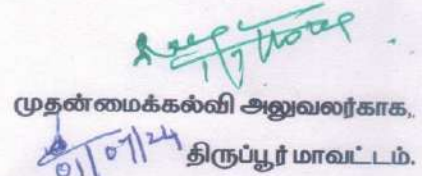 முதன்மைக்கல்வி அலுவலர்காக,
01/07/24 திருப்பூர் மாவட்டம்.